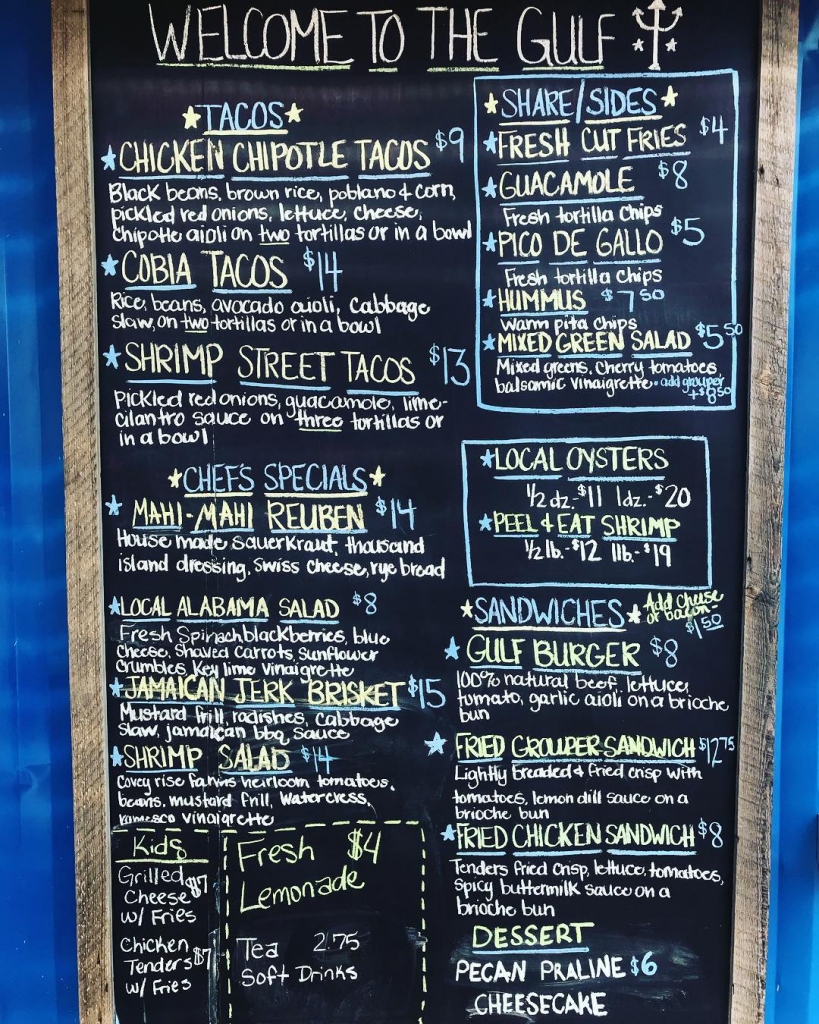 WELCOME TO THE GULF
TACOS
CHICKEN CHIPOTLE TACOS $9
Black beans, brown rice, poblano & corn,
pickled red onions, lettuce, cheese,
chipotle aioli on two tortillas or in a bowl
COBIA TACOS $14
Rice, beans, avocado aioli, Cabbage
slaw, on two tortillas or in a bowl
SHRIMP STREET TACOS $13
Pickled red onions, guacamole, lime-
cilantro sauce on three tortillas or
in a bowl
CHEF'S SPECIALS
MAHI-MAHI REUBEN $14
House made sauerkraut, thousand
island dressing, Swiss cheese, rye bread
LOCAL ALABAMA SALAD $8
Fresh Spinach blackberries, blue
cheese, shaved carrots, sunflower
crumbles, Key lime vinaigrette
JAMAICAN JERK BRISKET $15
Mustard frill, radishes, Cabbage
Slaw, jamaican bbq sauce
SHRIMP SALAD $14
Covey rise farms heirloom tomatoes,
beans, mustard frill, watercress,
romesco vinaigrette
Kids
Grilled
Cheese $7
w/ Fries
Chicken
Tenders $7
w/ Fries
Fresh $4
Lemonade
Tea 2.75
Soft Drinks
SHARE/SIDES
FRESH CUT FRIES $4
GUACAMOLE $8
Fresh tortilla chips
PICO DE GALLO $5
Fresh tortilla chips
HUMMUS $7 50
Warm pita chips
MIXED GREEN SALAD $5 50
Mixed greens, Cherry tomatoes,
balsamic vinaigrette • add grouper
+$8 50
LOCAL OYSTERS
1/2 dz.-$11 1dz.-$20
PEEL & EAT SHRIMP
1/2 lb.-$12 1lb.-$19
SANDWICHES Add cheese
or bacon-
$1 50
GULF BURGER $8
100% natural beef, lettuce,
tomato, garlic aioli on a brioche
bun
FRIED GROUPER SANDWICH $12 75
Lightly breaded & fried crisp with
tomatoes, lemon dill sauce on a
brioche bun
FRIED CHICKEN SANDWICH $8
Tenders fried crisp, lettuce, tomatoes,
spicy buttermilk sauce on a
brioche bun
DESSERT
PECAN PRALINE $6
CHEESECAKE